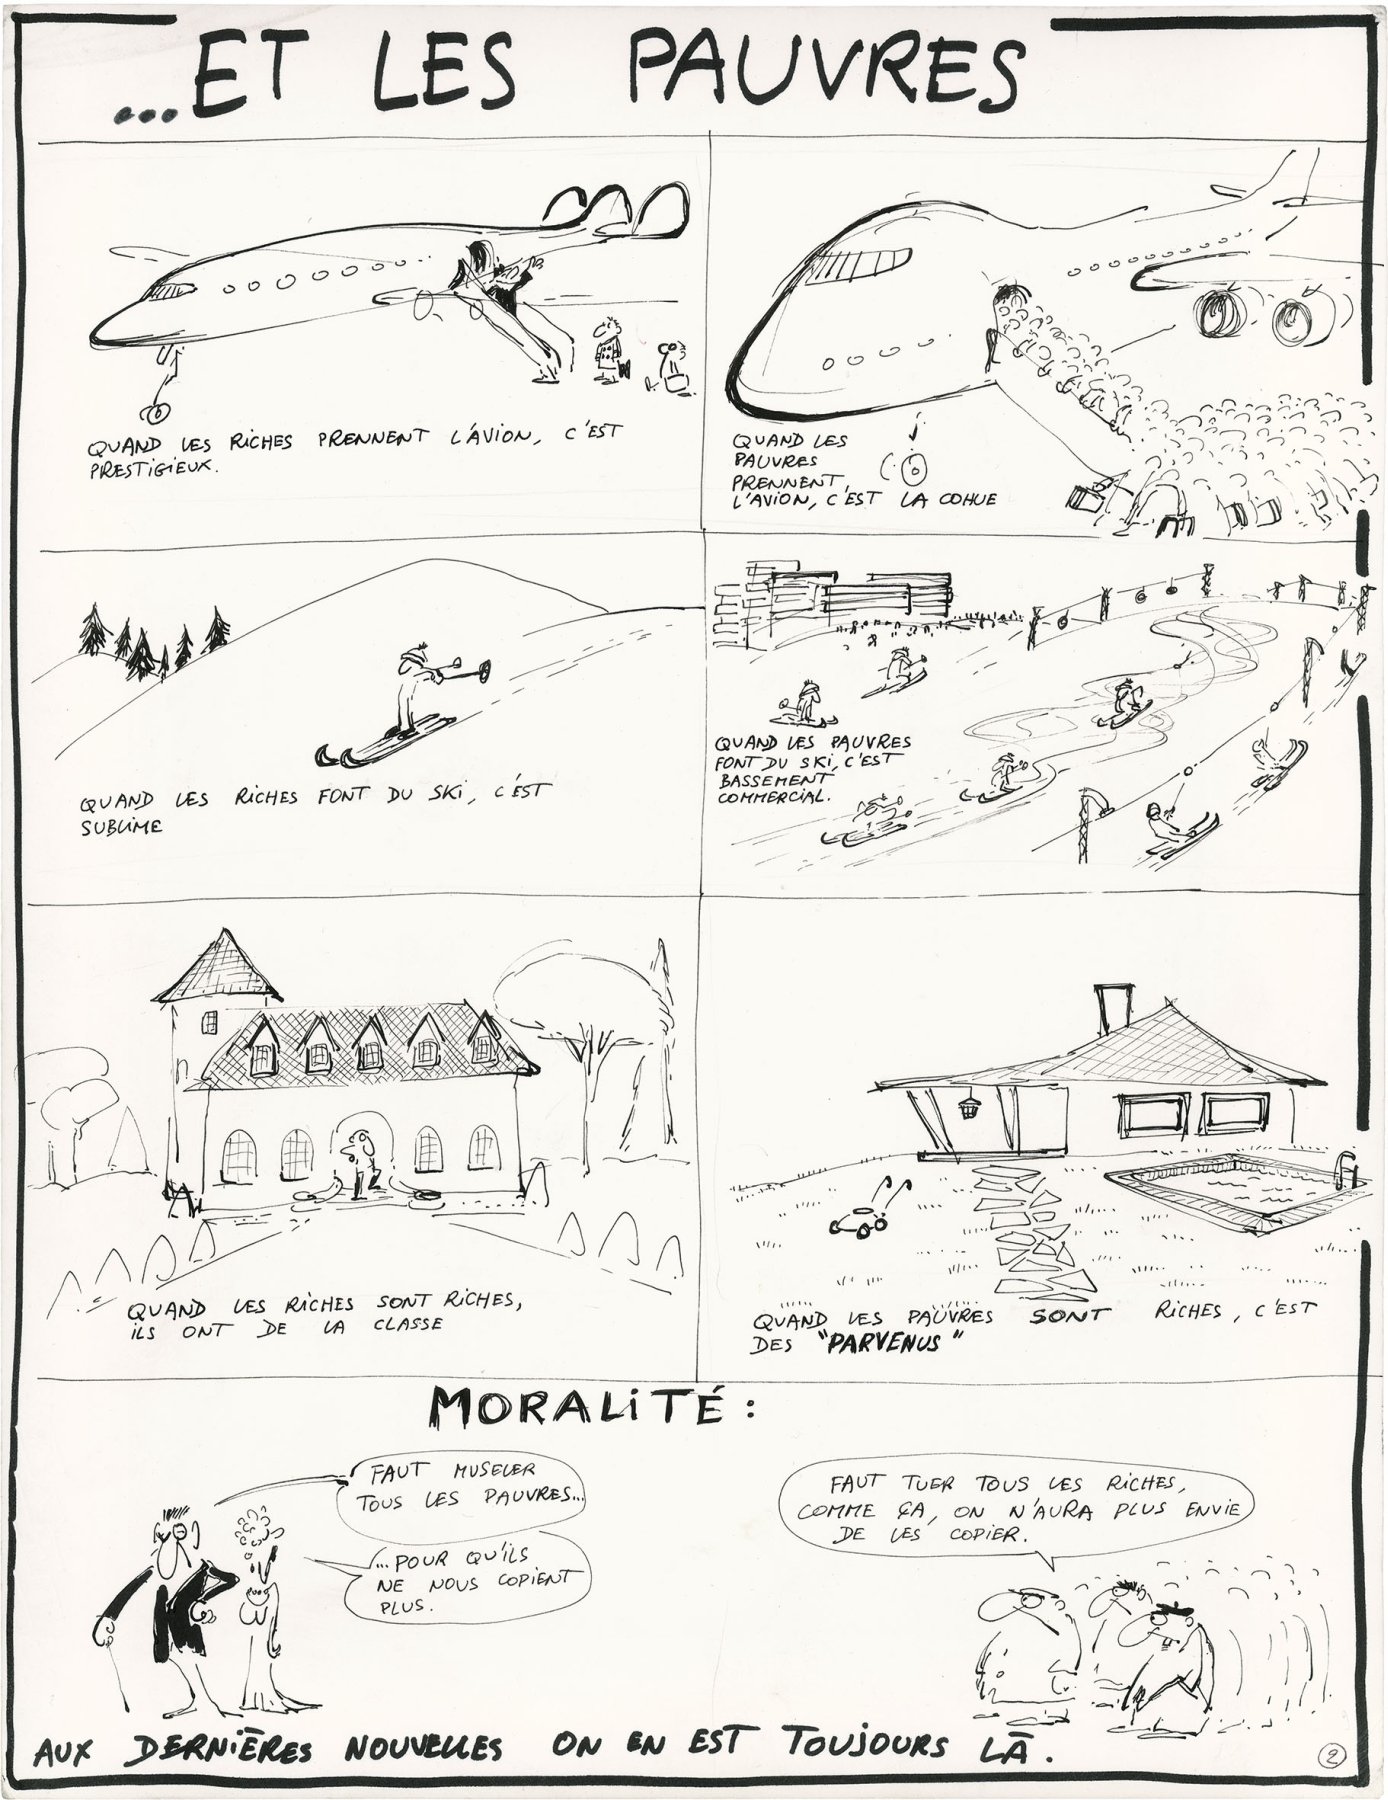 ...ET LES PAUVRES
QUAND LES RICHES PRENNENT L'AVION, C'EST
PRESTIGIEUX.
QUAND LES
PAUVRES
PRENNENT
L'AVION, C'EST LA COHUE
QUAND LES RICHES FONT DU SKI, C'EST
SUBLIME
QUAND LES PAUVRES
FONT DU SKI, C'EST
BASSEMENT
COMMERCIAL.
QUAND LES RICHES SONT RICHES,
ILS ONT DE LA CLASSE
QUAND LES PAUVRES SONT RICHES, C'EST
DES "PARVENUS"
MORALITÉ :
FAUT MUSELER
TOUS LES PAUVRES...
...POUR QU'ILS
NE NOUS COPIENT
PLUS.
FAUT TUER TOUS LES RICHES,
COMME ÇA, ON N'AURA PLUS ENVIE
DE LES COPIER.
AUX DERNIÈRES NOUVELLES ON EN EST TOUJOURS LÀ.
2